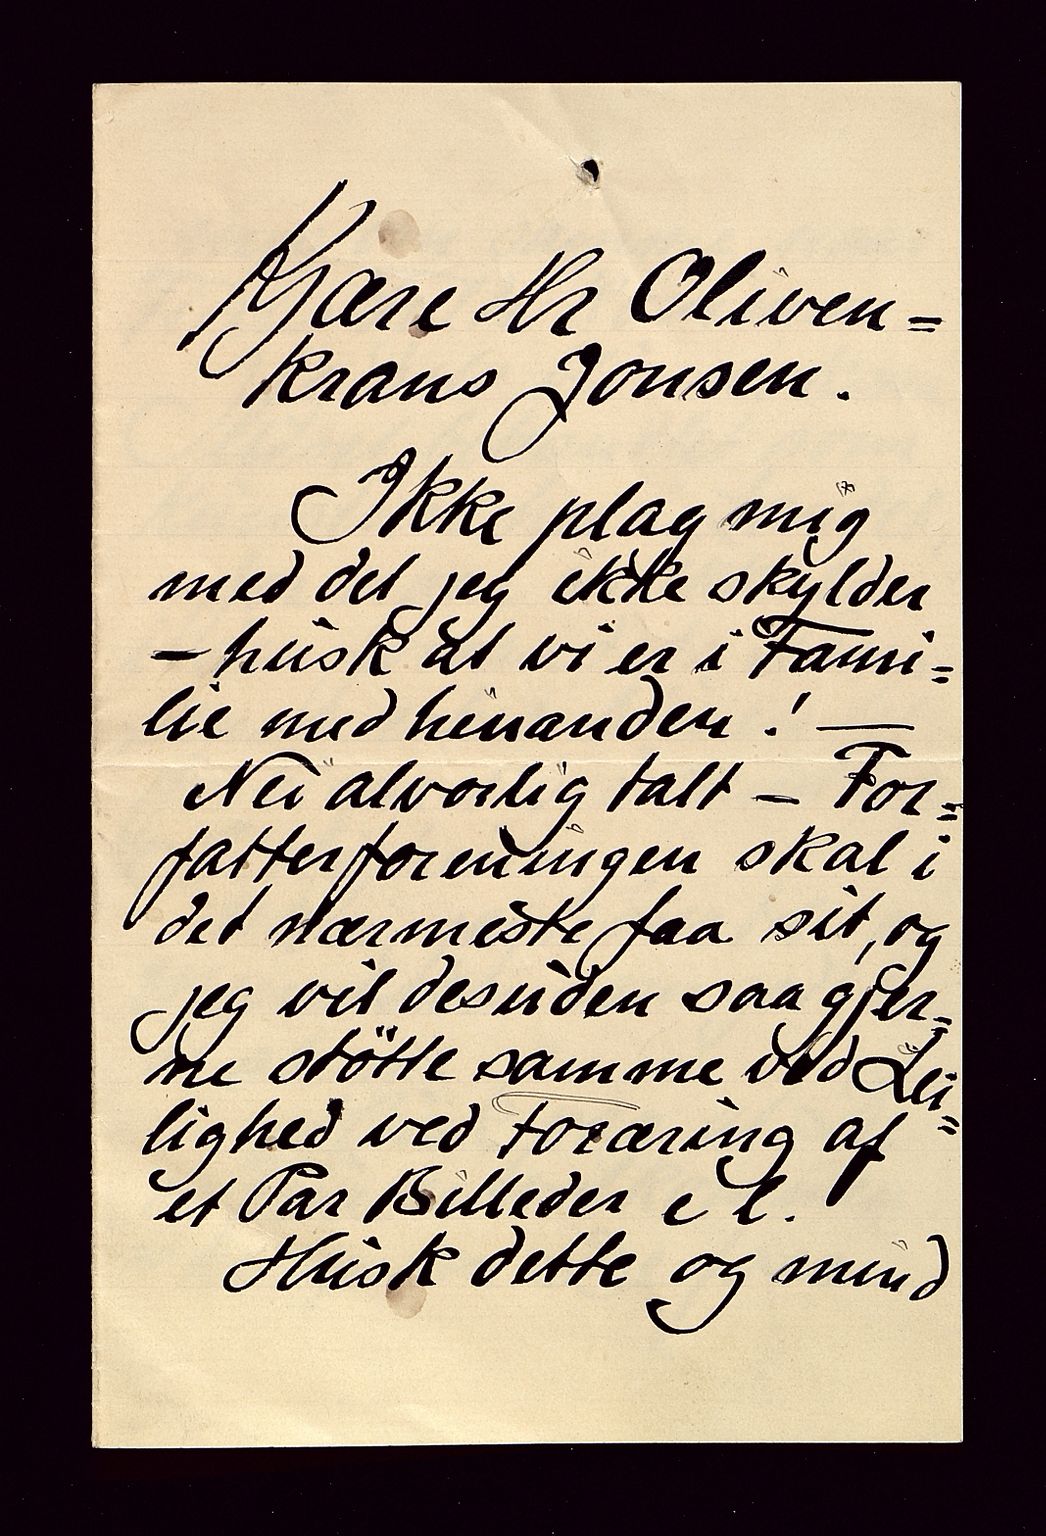 Kjære Hr Oliven=
krans Jonsen.
Ikke plag mig
med det jeg ikke skylder
– husk at vi er i Fami=
lie med hinanden! —
Nei alvorlig talt – For=
fatterforeningen skal i
det nærmeste faa sit, og
jeg vil desuden saa gjer=
ne stötte samme ved Lei=
lighed ved Foræring af
et Par Billeder e l.
Husk dette og mind